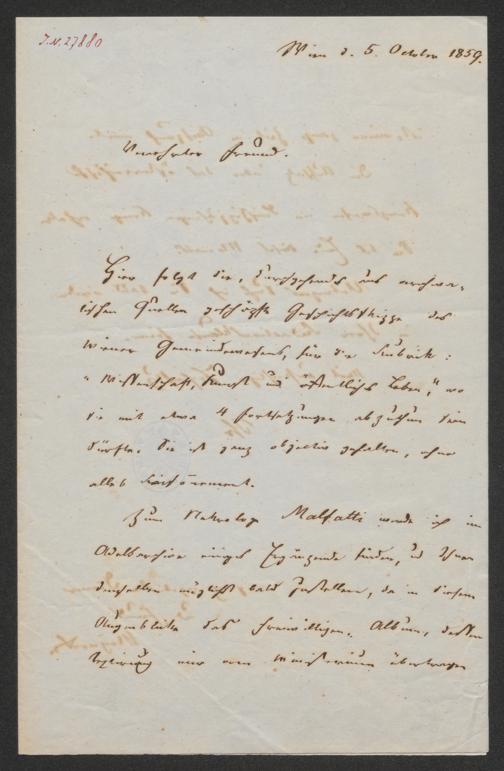 J.N. 27880
Wien d. 5. October 1859.
Verehrter Freund.
Hier folgt die, durchgehends aus archiva-
lischen Quellen geschöpfte Geschichtsskizze des
Wiener Gemeindewesens, für die Rubrik:
"Wissenschaft, Kunst und öffentliches Leben," wo
sie mit etwa 4 Fortsetzungen abzuthun sein
dürfte. Sie ist ganz objectiv gehalten, ohne
alles
Zum Nekrolog Malfatti werde ich im
Adelsarchive einiges Ergänzende finden, und Ihnen
dasselbe möglichst bald zustellen, da in diesem
Augenblicke das Freiwilligen-Album, dessen
mir vom Ministerium übertragen